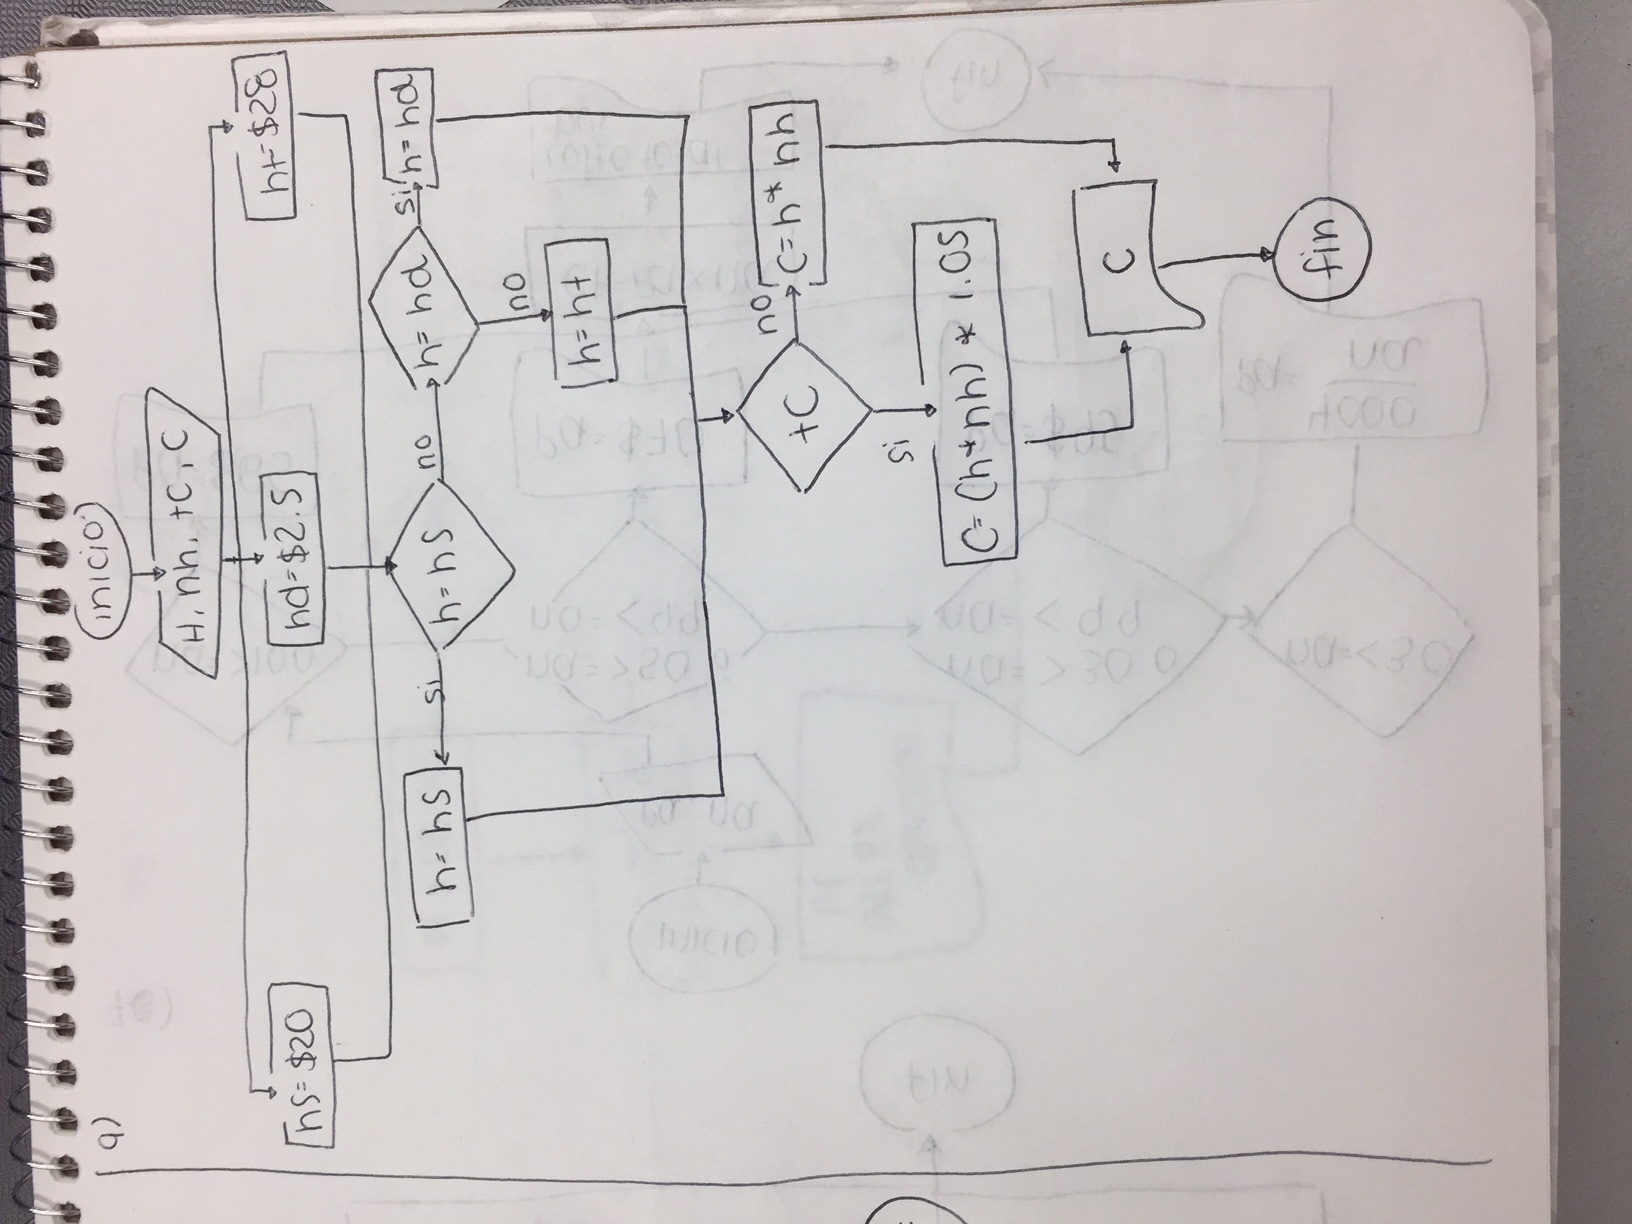 9)
inicio
H, nh, +C, C
hS=$20
hd=$2.5
ht=$28
h=hS
si
h=hS
no
h=hd
si
h=hd
no
h=ht
+C
no
C=h* nh
si
C=(h*nh) * 1.05
C
fin